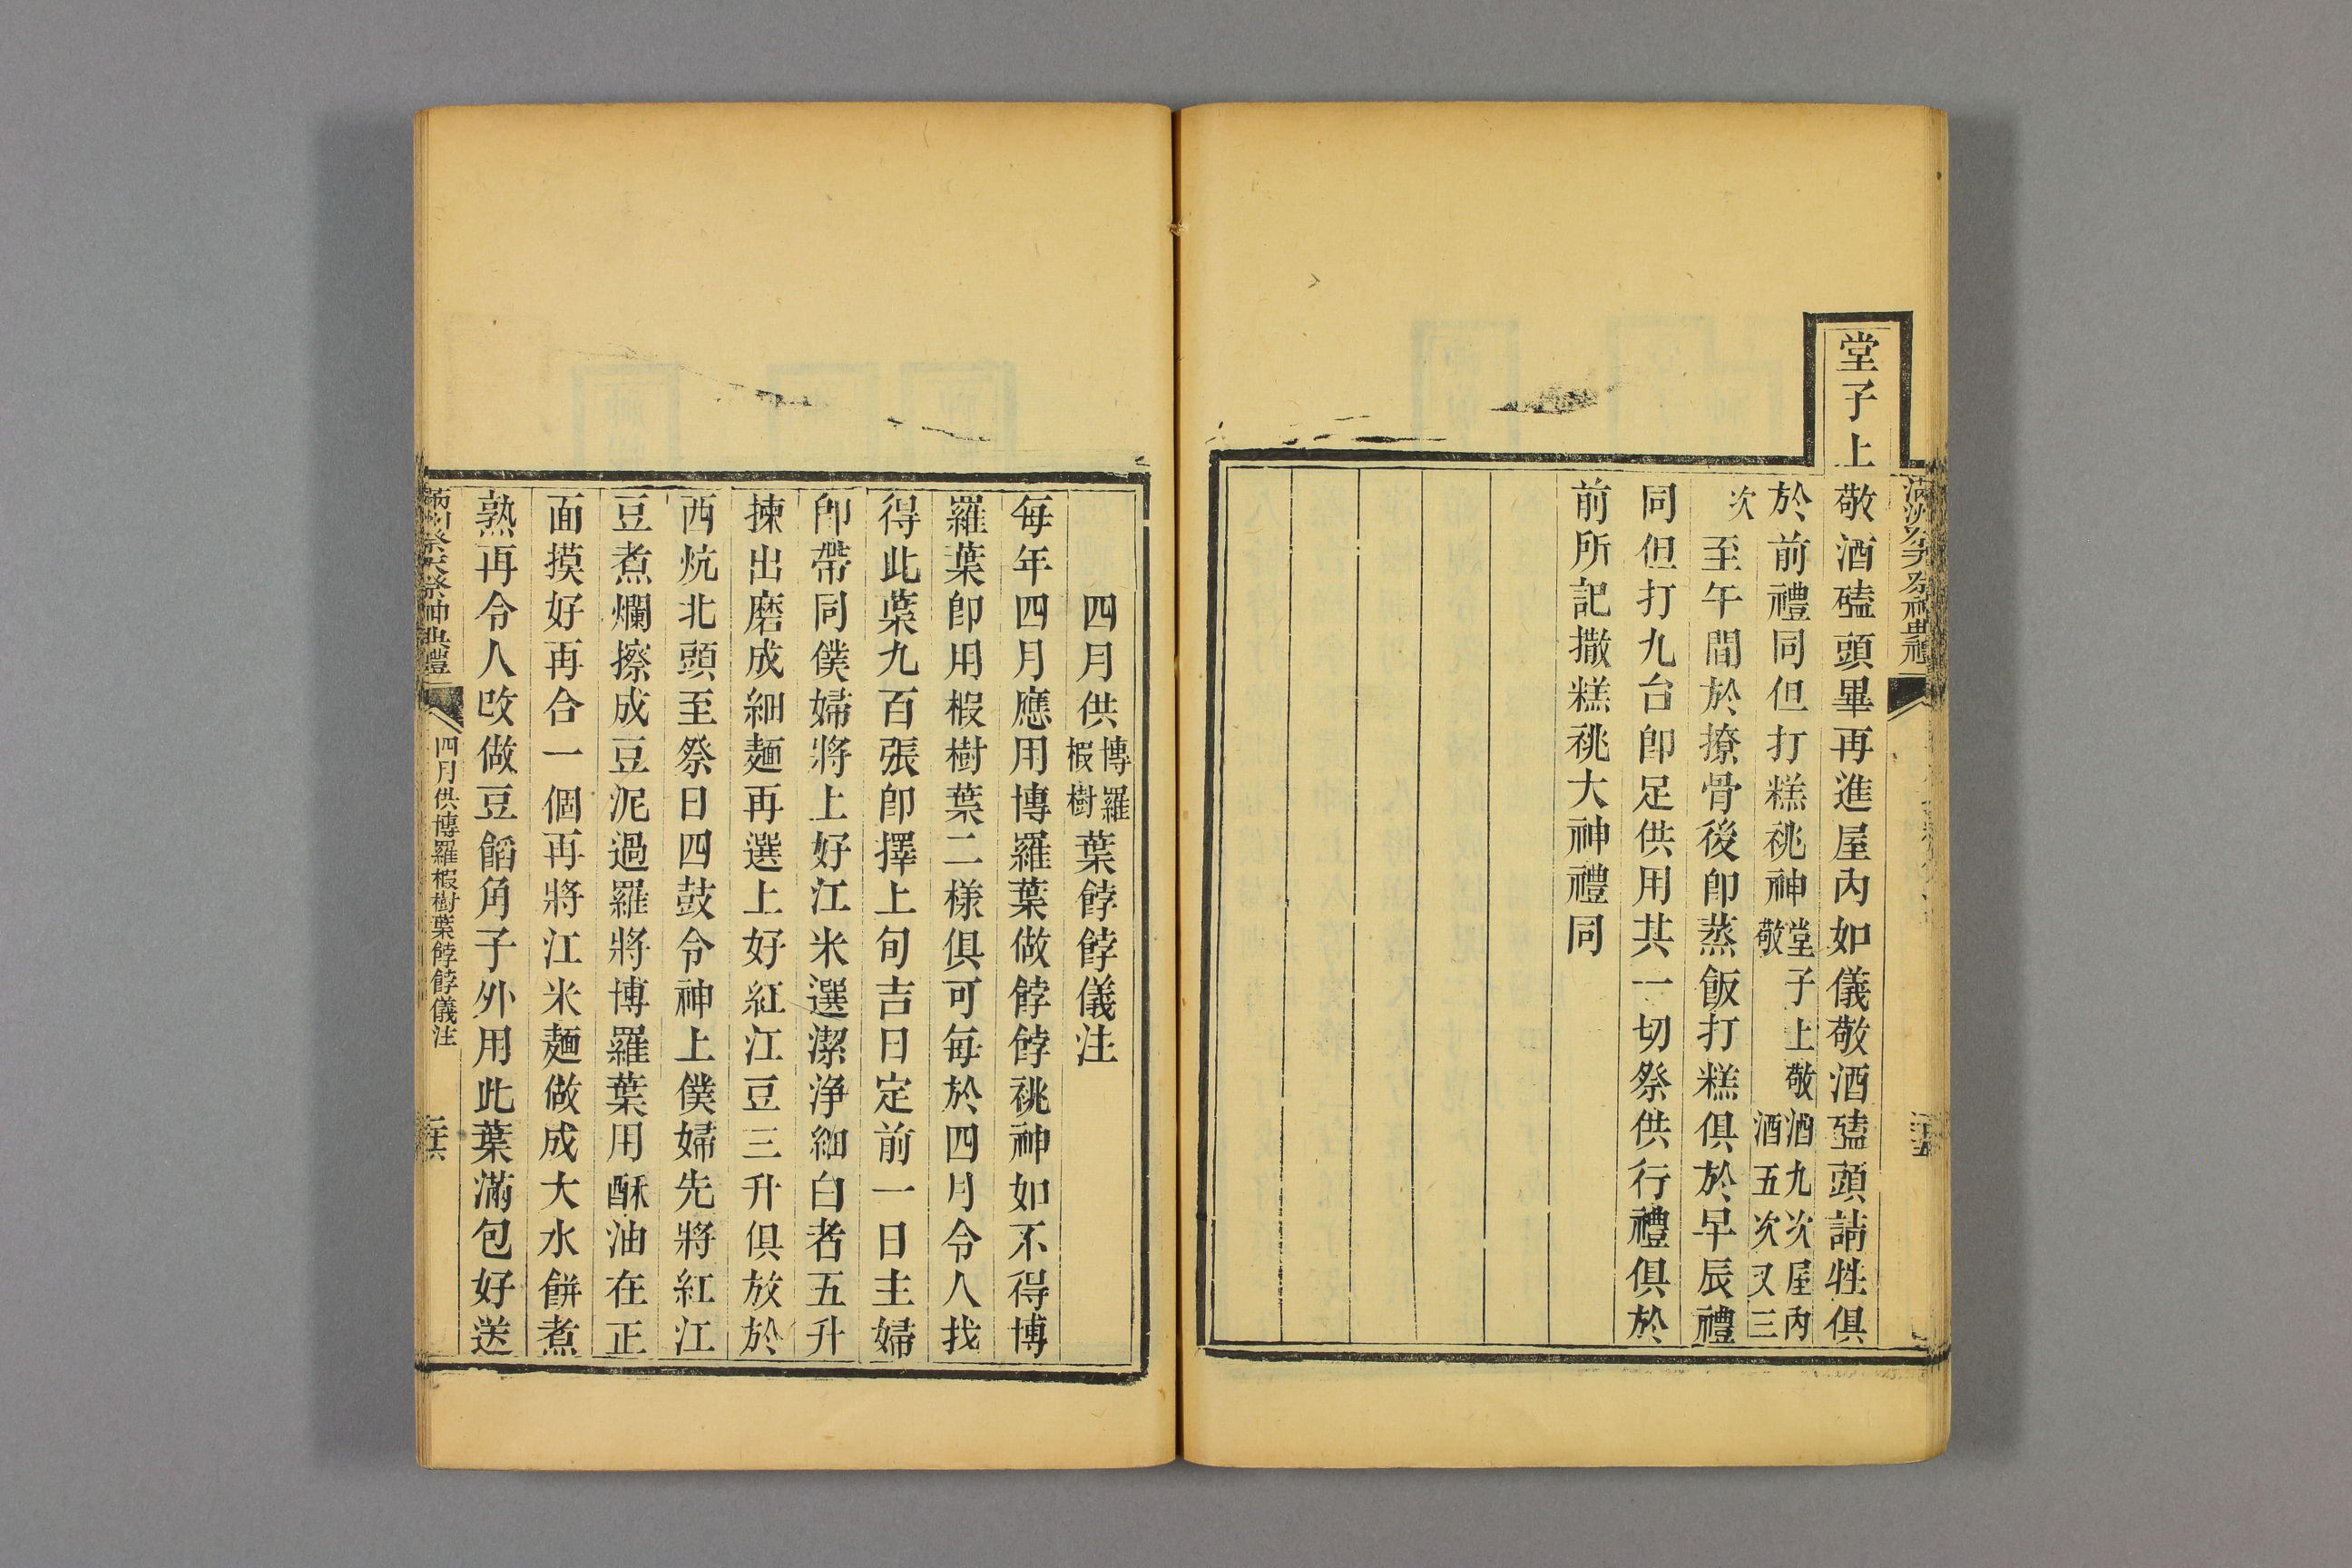 堂子上敬酒磕頭畢再進屋內如儀敬酒磕頭請牲俱
於前禮同但打糕祧神堂子上敬酒九次屋內
敬酒五次又三
次至午間於撩骨後卽蒸飯打糕俱於早辰禮
同但打九台卽足供用其一切祭供行禮俱於
前所記撒糕祧大神禮同
四月供博羅
椵樹葉餑餑儀注
每年四月應用博羅葉做餑餑祧神如不得博
羅葉卽用椵樹葉二樣俱可每於四月令人找
得此葉九百張卽擇上旬吉日定前一日主婦
卽帶同僕婦將上好江米選潔淨細白者五升
揀出磨成細麺再選上好紅江豆三升俱放於
西炕北頭至祭日四鼓令神上僕婦先將紅江
豆煮爛擦成豆泥過羅將博羅葉用酥油在正
面摸好再合一個再將江米麺做成大水餅煮
熟再令人改做豆餡角子外用此葉滿包好送
滿洲祭天祭神典禮
四月供博羅椵樹葉餑餑儀注